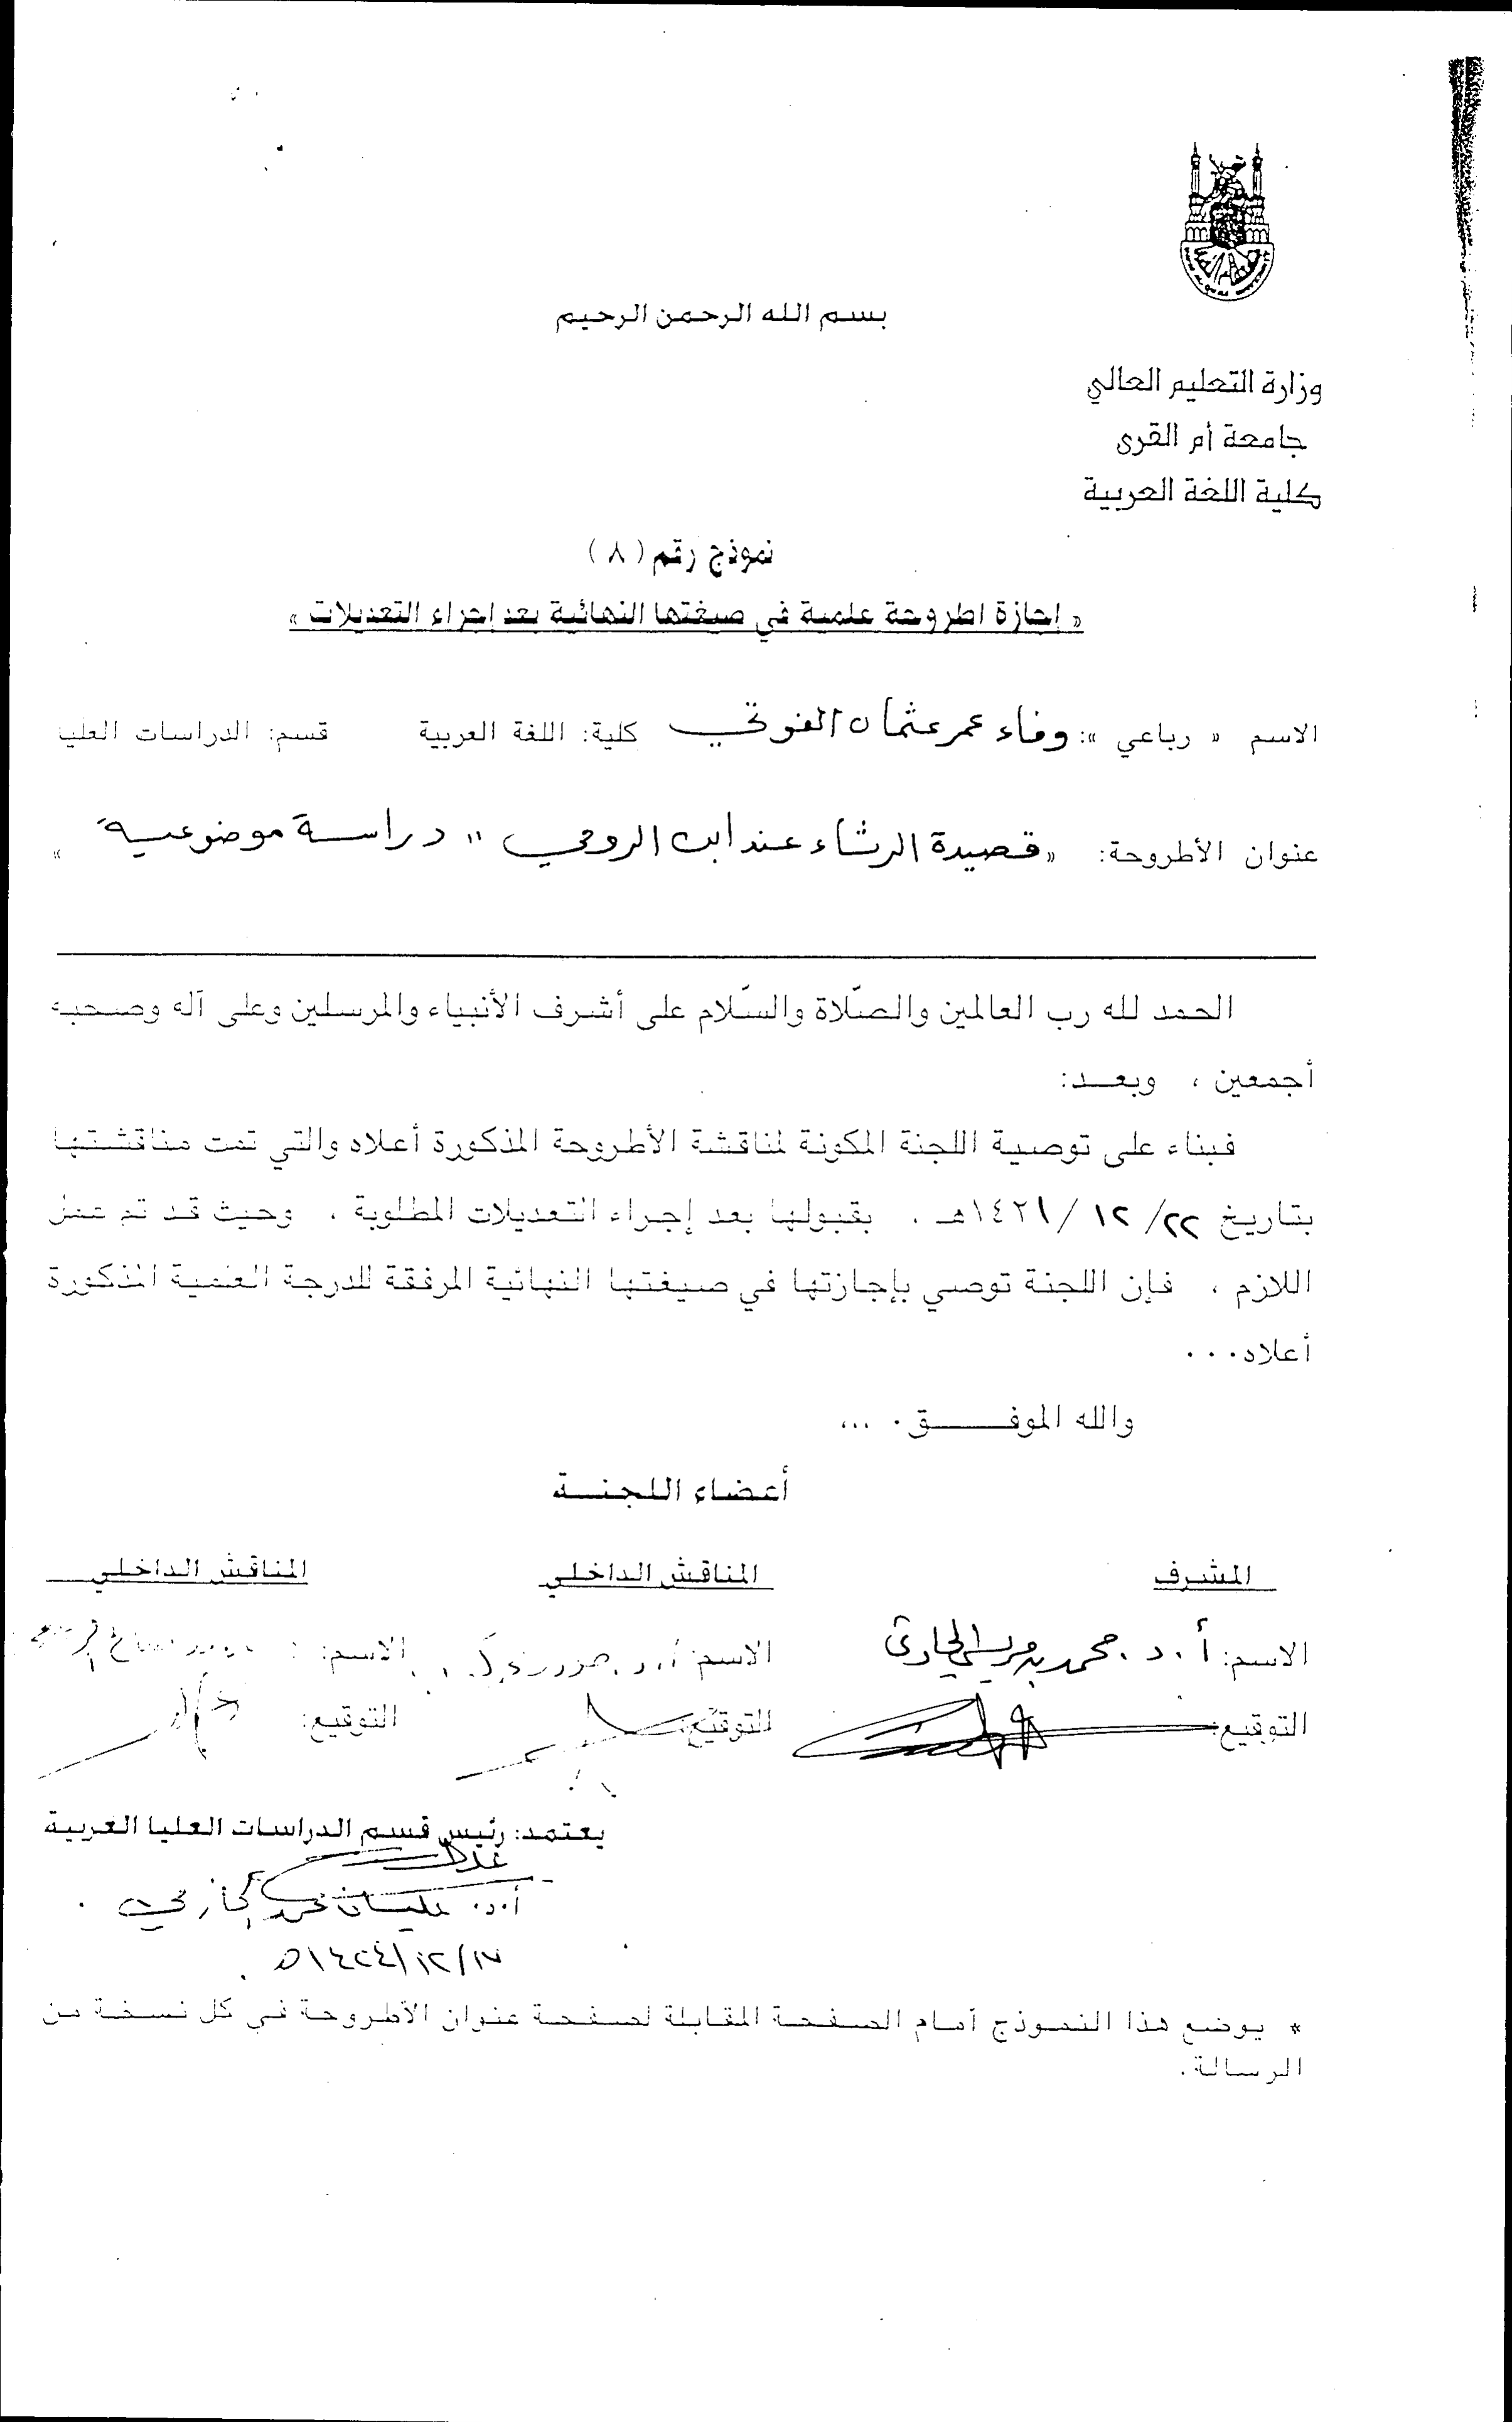 بسم الله الرحمن الرحيم
وزارة التعليم العالي
جامعة أم القرى
كلية اللغة العربية
نموذج رقم ( ٨ )
« إجازة اطروحة علمية في صيغتها النهائية بعد إجراء التعديلات »
الاسم « رباعي »: وفاء عمر عثمان الفوتي كلية: اللغة العربية قسم: الدراسات العليا
عنوان الأطروحة: « قصيدة الرثاء عند ابن الرومي ,, دراسة موضوعية »
الحمد لله رب العالمين والصّلاة والسّلام على أشرف الأنبياء والمرسلين وعلى آله وصحبه
أجمعين ، وبعـــد:
فبناء على توصية اللجنة المكونة لمناقشة الأطروحة المذكورة أعلاه والتي تمت مناقشتها
بتاريخ ٢٢/ ١٢ /١٤٢١هـ ، بقبولها بعد إجراء التعديلات المطلوبة ، وحيث قد تم عمل
اللازم ، فإن اللجنة توصي بإجازتها في صيغتها النهائية المرفقة للدرجة العلمية المذكورة
أعلاه...
والله الموفــــــق. ...
أعضاء اللجنــة
المشرف المناقش الداخلي المناقش الداخلي
الاسم: أ. د. محمد بن مريسي الحارثي الاسم: أ. د. الاسم:
التوقيع: التوقيع: التوقيع:
يعتمد: رئيس قسم الدراسات العليا العربية
أ.د. محمد الحازمي
١٧/١٢/١٤٢٤هـ
* يوضع هذا النموذج أمام الصفحة المقابلة لصفحة عنوان الأطروحة في كل نسخة من
الرسالة.